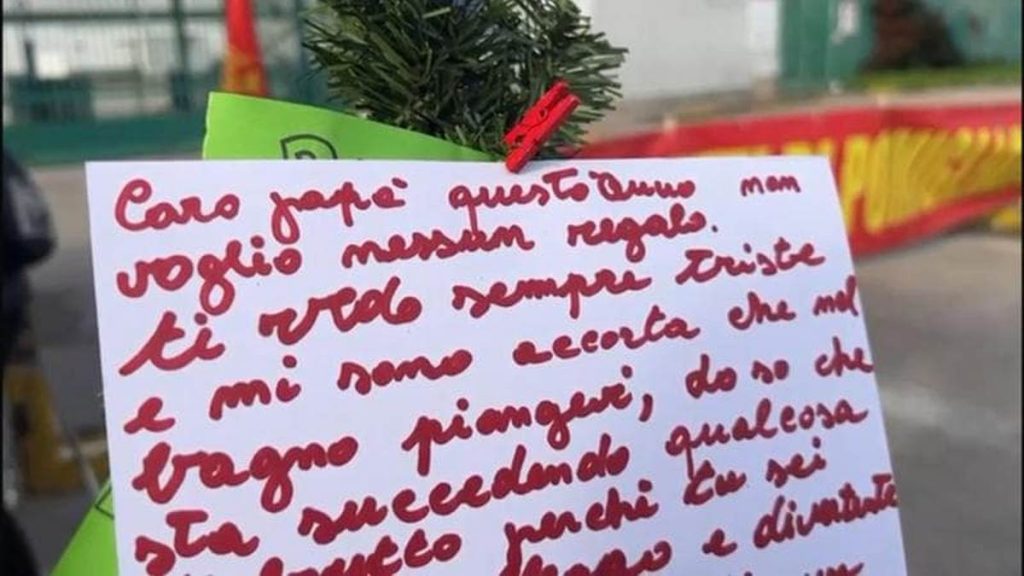 Caro papà questo'anno non
voglio nessun regalo.
ti vedo sempre triste
e mi sono accorta che nel
bagno piangevi, lo so che
sta succedendo qualcosa
brutto perché tu sei
e divertente
un
POMIGLIANO